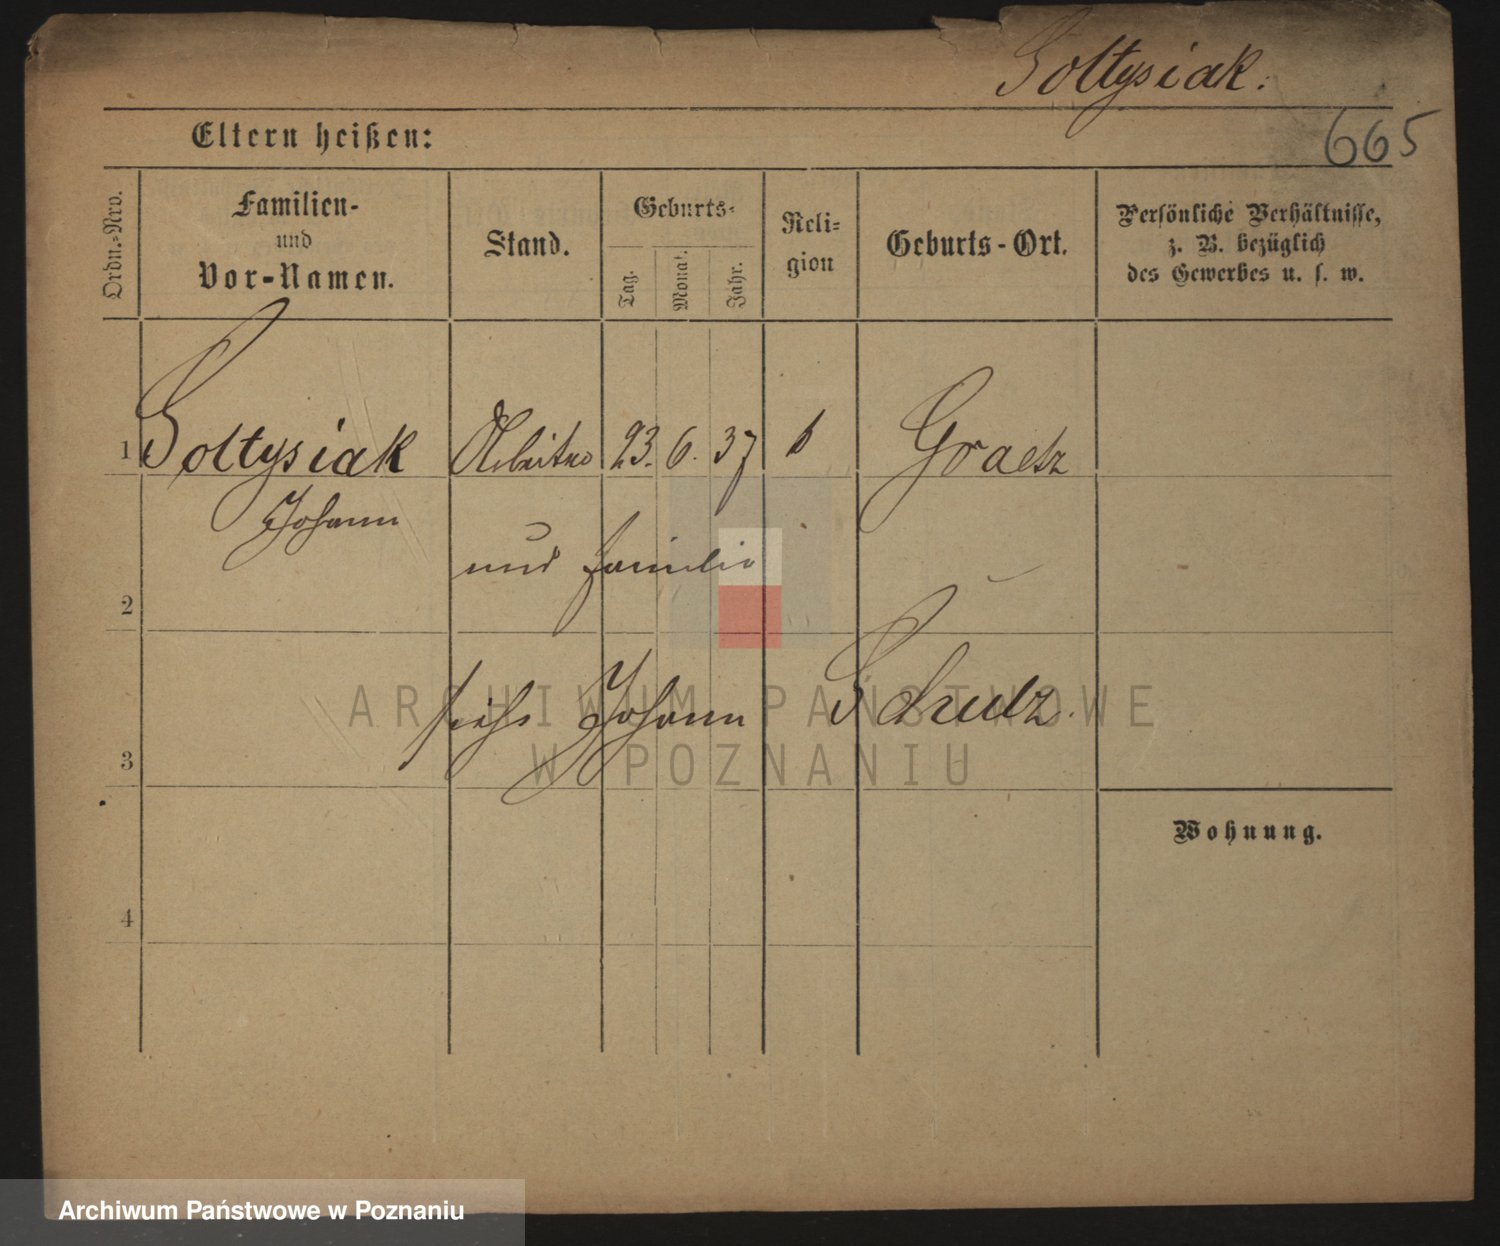 Soltysiak.
665
Eltern heißen:
Ordn.-Nro.
Familien-
und
Vor-Namen.
Stand.
Geburts-
Tag.
Monat.
Jahr.
Reli-
gion
Geburts-Ort.
Persönliche Verhältnisse,
z. B. bezüglich
des Gewerbes u. s. w.
1 Soltysiak Arbeiter 23. 6. 37 Graetz
Johann
und Familie
2
siehe Johann Schulz.
3
Wohnung.
4
ARCHIWUM PAŃSTWOWE
W POZNANIU
Archiwum Państwowe w Poznaniu